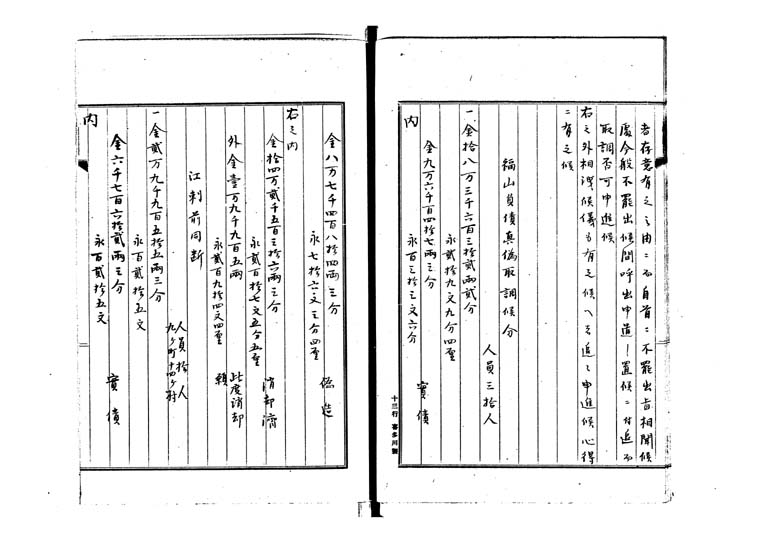 者存意有之之由ニ而自首ニ不罷出旨相聞候
處今般不罷出候間呼出申遣し置候ニ付追而
取調否可申進候
右之外相洩候儀も有之候ハゝ追々申進候心得
ニ有之候
福山負債真偽取調候分
人員三拾人
一金拾八万三千六百三拾弐両弐分
永貳拾九文九分四厘
内
金九万六千百四拾七両三分
永百三拾三文六分
實債
十三行 喜多川製
金八万七千四百八拾四両三分
永七拾六文三分四厘
偽造
右之内
金拾四万貳千五百三拾六両三分
永貳百拾七文五分五厘
消却濟
外金壹万九千九百五両
永貳百九拾四文四厘
此度消却
願
江刺前同断
人員拾人
九ケ町十四ケ村
一金貳万九千九百五拾五両三分
永百貳拾五文
内
金六千七百六拾貳両三分
永百貳拾五文
實債